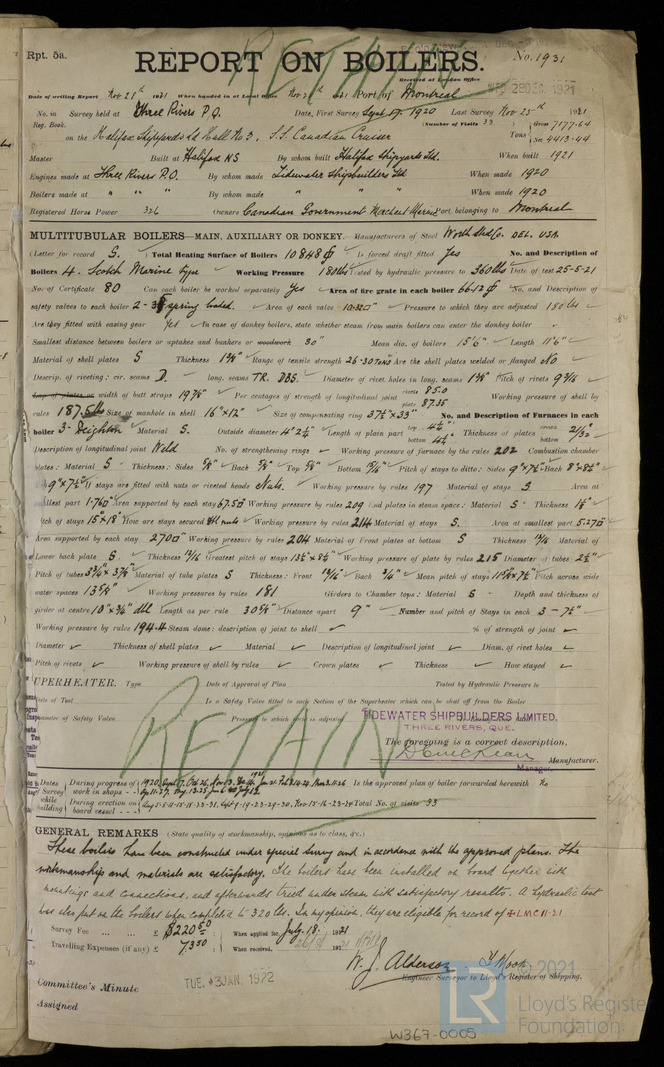 Rpt. 5a.
REPORT ON BOILERS.
No. 1931
RETAIN
Received at London Office
WED. 28 DEC. 1921
Date of writing Report Nov 28th 1921 When handed in at Local Office Nov 1921 Port of Montreal
No. in Survey held at Three Rivers P.Q. Date, First Survey Sept 17. 1920 Last Survey Nov 25th 1921
Reg. Book. (Number of Visits 33)
on the Halifax Shipyards Ltd Hull No 3, S.S. Canadian Cruiser Tons Gross 7177.64 Net 4413.44
Master Built at Halifax NS By whom built Halifax Shipyards Ltd. When built 1921
Engines made at Three Rivers P.Q. By whom made Tidewater Shipbuilders Ltd When made 1920
Boilers made at " " " By whom made " " When made 1920
Registered Horse Power 326 Owners Canadian Government Merchant Marine Port belonging to Montreal
MULTITUBULAR BOILERS—MAIN, AUXILIARY OR DONKEY.—Manufacturers of Steel Worth Steel Co. DEL. USA.
(Letter for record S.) Total Heating Surface of Boilers 10848 Is forced draft fitted Yes No. and Description of
Boilers 4. Scotch Marine type Working Pressure 180 lbs Tested by hydraulic pressure to 360 lbs Date of test 25-5-21
No. of Certificate 80 Can each boiler be worked separately Yes Area of fire grate in each boiler 66.12 No. and Description of
safety valves to each boiler 2- spring loaded. Area of each valve Pressure to which they are adjusted 180 lbs
Are they fitted with easing gear Yes In case of donkey boilers, state whether steam from main boilers can enter the donkey boiler
Smallest distance between boilers or uptakes and bunkers or woodwork 30" Mean dia. of boilers 15'6" Length 11'6"
Material of shell plates S Thickness Range of tensile strength 26-30 tons Are the shell plates welded or flanged No
Descrip. of riveting: cir. seams D. long. seams TR. DBS. Diameter of rivet holes in long. seams Pitch of rivets 9 3/16
Lap of plates or width of butt straps 19 7/8" Per centages of strength of longitudinal joint rivets 85.0 plate 87.35 Working pressure of shell by
rules 187.5 lb Size of manhole in shell 16"x12" Size of compensating ring 37½"x33" No. and Description of Furnaces in each
boiler 3- Deighton Material S. Outside diameter 4'2½" Length of plain part top bottom Thickness of plates crown bottom 21/32
Description of longitudinal joint Weld No. of strengthening rings Working pressure of furnace by the rules 202 Combustion chamber
plates: Material S Thickness: Sides 5/8" Back 5/8" Top 5/8" Bottom Pitch of stays to ditto: Sides 9"x7½" Back
9"x7½" If stays are fitted with nuts or riveted heads Nuts. Working pressure by rules 197 Material of stays S Area at
smallest part 1.76 Area supported by each stay 67.50 Working pressure by rules 209 End plates in steam space: Material S Thickness 1⅛"
Pitch of stays 15"x18" How are stays secured nuts Working pressure by rules 214 Material of stays S. Area at smallest part 5.27
Area supported by each stay 270 Working pressure by rules 204 Material of Front plates at bottom S Thickness Material of
Lower back plate S. Thickness 13/16 Greatest pitch of stays 13½"x8½" Working pressure of plate by rules 215 Diameter of tubes 2½"
Pitch of tubes Material of tube plates S Thickness: Front 13/16 Back Mean pitch of stays Pitch across wide
water spaces Working pressures by rules 181 Girders to Chamber tops: Material S Depth and thickness of
girder at centre 10"x¾" dbl Length as per rule 30 5/8" Distance apart 9" Number and pitch of Stays in each 3 - 7½"
Working pressure by rules 194.4 Steam dome: description of joint to shell % of strength of joint
Diameter Thickness of shell plates Material Description of longitudinal joint Diam. of rivet holes
Pitch of rivets Working pressure of shell by rules Crown plates Thickness How stayed
UPERHEATER. Type Date of Approval of Plan Tested by Hydraulic Pressure to
Date of Test Is a Safety Valve fitted to each Section of the Superheater which can be shut off from the Boiler
Diameter of Safety Valve Pressure to which each is adjusted
TIDEWATER SHIPBUILDERS LIMITED,
THREE RIVERS, QUE.
RETAIN
The foregoing is a correct description,
Manager. Manufacturer.
Dates of Survey while building
During progress of work in shops Is the approved plan of boiler forwarded herewith No
During erection on board vessel Total No. of visits 33
GENERAL REMARKS (State quality of workmanship, opinions as to class, &c.)
These boilers have been constructed under special survey and in accordance with the approved plans. The
workmanship and materials are satisfactory. The boilers have been installed on board together with
mountings and connections, and afterwards tried under steam with satisfactory results. A hydraulic test
was also put on the boilers when completed to 320 lbs. In my opinion, they are eligible for record of LMC 11-21
Survey Fee £ $220.50 When applied for, July 18. 1921
Travelling Expenses (if any) £ 7.50 When received,
W. J. Alderson
Engineer Surveyor to Lloyd's Register of Shipping.
Committee's Minute TUE. 3 JAN. 1922
Assigned
© 2021
LR
Lloyd's Register
Foundation
W367-0005